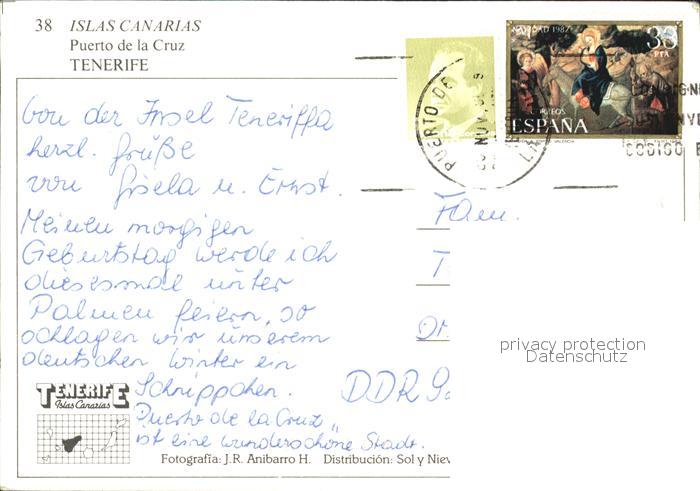 38 ISLAS CANARIAS
Puerto de la Cruz
TENERIFE
NAVIDAD 1982
33
PTA
CORREOS
ESPAÑA
PUERTO DE
NOV
CODIGO
Von der Insel Teneriffa
herzl. Grüße
von Gisela u. Ernst.
Meinen morgigen
Geburtstag werde ich
diesesmal unter
Palmen feiern, so
schlagen wir unserem
deutschen Winter ein
Schnippchen.
"Puerto de la Cruz"
ist eine wunderschöne Stadt.
Fam.
DDR
privacy protection
Datenschutz
TENERIFE
Islas Canarias
Fotografía: J.R. Anibarro H. Distribución: Sol y Niev